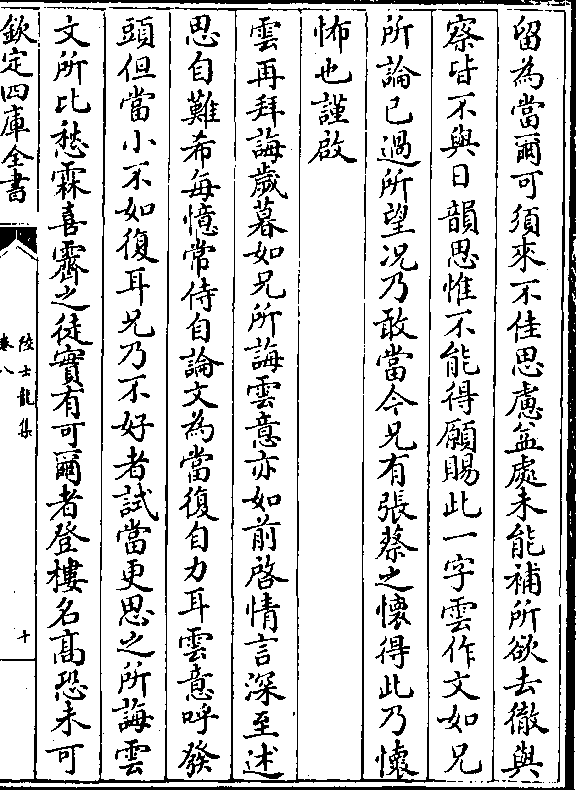 留為當爾可須來不佳思慮益處未能補所欲去徹與
察皆不與日韻思惟不能得願賜此一字雲作文如兄
所論已過所望况乃敢當今兄有張蔡之懷得此乃懷
怖也謹啟
雲再拜誨歲暮如兄所誨雲意亦如前啓情言深至述
思自難希每憶常侍自論文為當復自力耳雲意呼發
頭但當小不如復耳兄乃不好者試當更思之所誨雲
文所比愁霖喜霽之徒實有可爾者登樓名高恐未可
欽定四庫全書
陸士龍集
卷八
十